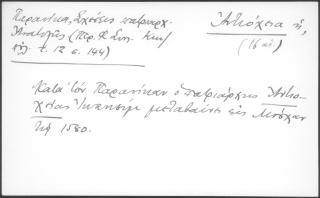 Παρανίκα, Σχέσεις πατριαρχ.
Ἀνατολῆς (Περ. Φ. Συλ. Κων/
πόλ. τ. 12 σ. 144)
Ἀντιόχεια ἡ,
(16 αἰ.)
Κατὰ τὸν Παρανίκαν ὁ πατριάρχης Ἀντιο-
χείας Ἰωακεὶμ μεταβαίνει εἰς Μόσχαν
τῷ 1580.